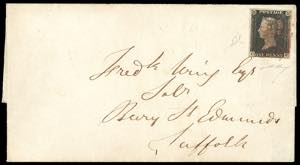 POSTAGE
ONE PENNY
Fredk Wing Esqr
Solr
Bury St Edmunds
Suffolk